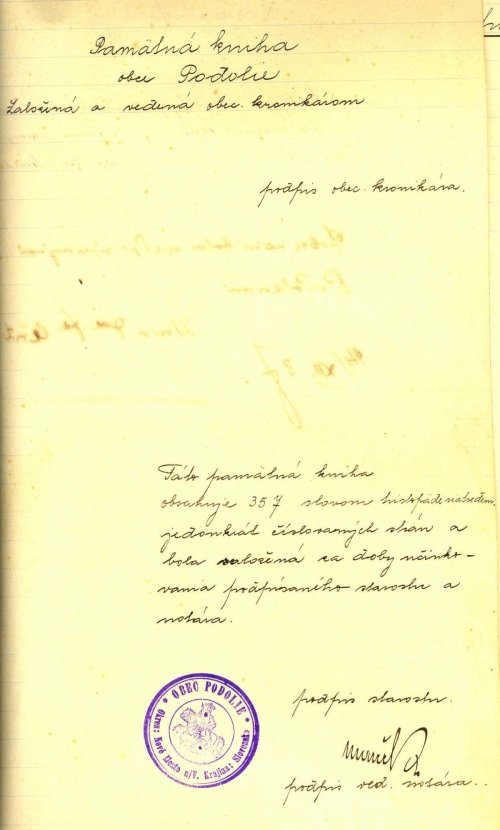 Pamätná kniha
obce Podolie
Založená a vedená obec. kronikárom
podpis obec. kronikára.
Táto pamätná kniha
obsahuje 357 slovom tristopäťdesiatsedem
jedonkrát číslovaných strán a
bola založená za doby účinko-
vania podpísaného starostu a
notára.
podpis starostu.
* OBEC PODOLIE *
Okres: Nové Mesto n/V. Krajina: Slovensko
podpis ved. notára.